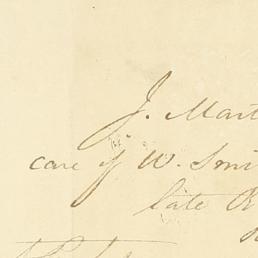 J. Mart
care of W. Smi
late R